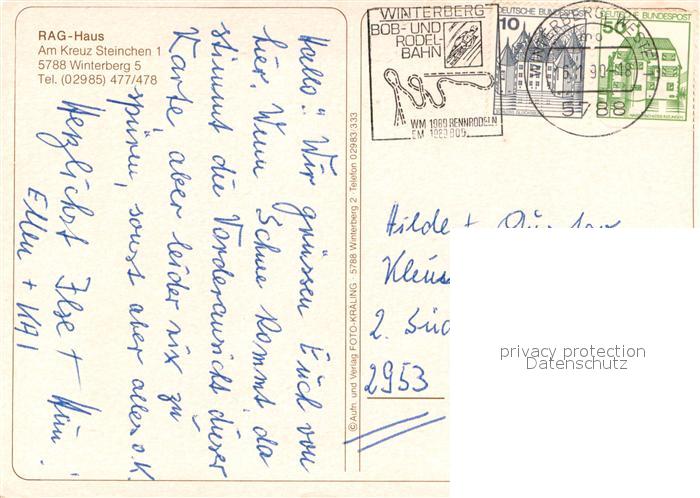 RAG-Haus
Am Kreuz Steinchen 1
5788 Winterberg 5
Tel. (02985) 477/478
Hallo! Wir grüssen Euch von
hier. Wenn Schnee kommt, da
stimmt die Vorderansicht dieser
Karte, aber leider nix zu
spüren, sonst aber alles o.K.
Herzlichst Ilse +
Ellen + KAI
©Aufn. und Verlag FOTO-KRALING · 5788 Winterberg 2 · Telefon 02983:333
WINTERBERG
BOB- UND
RODEL-
BAHN
WM 1989 RENNRODELN
WINTERBERG, WESTF
-6.11.90-18
5788
10
DEUTSCHE BUNDESPOST
50
DEUTSCHE BUNDESPOST
Hilde +
2.
2953
privacy protection
Datenschutz